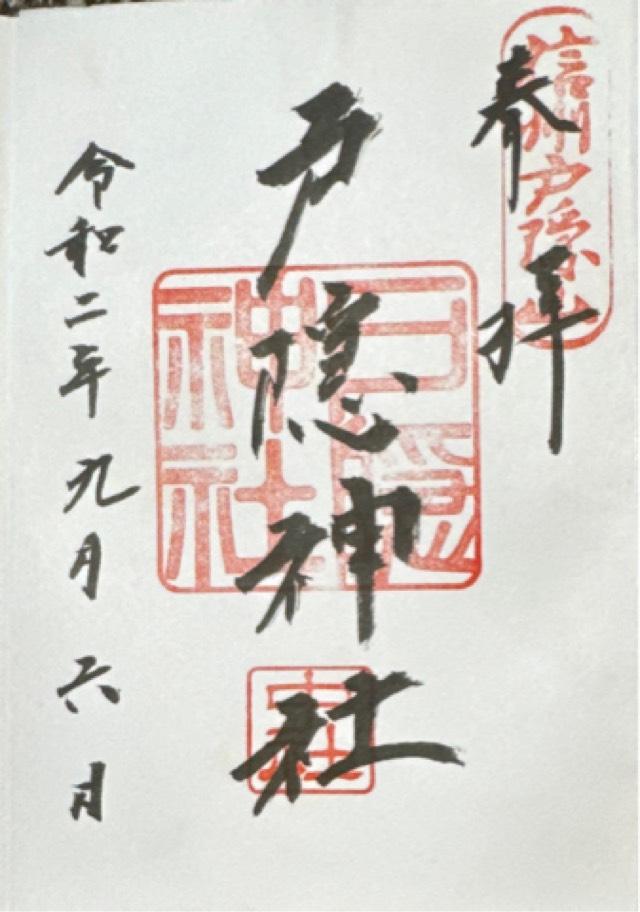 信州戸隠山
奉拝
戸隠神社
戸隠神社
中社
令和二年九月六日